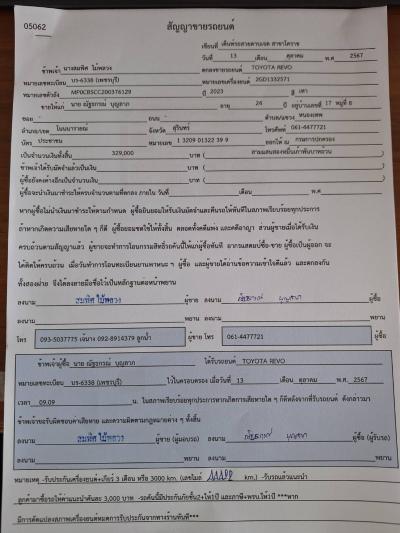 05062
สัญญาขายรถยนต์
เขียนที่ เต็นท์รถสวยตามเจต สาขาโคราช
วันที่ 13 เดือน ตุลาคม พ.ศ 2567
ข้าพเจ้า นางสมพิศ ไม้พลวง ตกลงขายรถยนต์ TOYOTA REVO
หมายเลขทะเบียน บร-6338 (เพชรบุรี) หมายเลขเครื่องยนต์ 2GD1332571
หมายเลขตัวถัง MP0CBSCC200376129 ปี 2023 สี เทา
ให้แก่ นาย ณัฐกรณ์ บุญลาภ อายุ 24 ปี อยู่บ้านเลขที่ 17 หมู่ที่ 8
ซอย - ถนน - ตำบล/แขวง หนองเทพ
อำเภอ/เขต โนนนารายณ์ จังหวัด สุรินทร์ โทรศัพท์ 061-4477721
บัตร ประชาชน หมายเลข 1 3209 01322 39 9 ออกให้ ณ กรมการปกครอง
เป็นจำนวนเงินทั้งสิ้น 329,000 บาท ( สามแสนสองหมื่นเก้าพันบาทถ้วน )
ข้าพเจ้าได้รับมัดจำแล้วเป็นเงิน บาท ( )
ผู้ซื้อยังคงค้างอีกเป็นจำนวนเงิน บาท ( )
ผู้ซื้อจะนำเงินมาชำระให้ครบจำนวนตามที่ตกลง ภายใน วันที่ เดือน พ.ศ.
หากผู้ซื้อไม่นำเงินมาชำระให้ตามกำหนด ผู้ซื้อยินยอมให้ริบเงินมัดจำและคืนรถให้ทันทีในสภาพเรียบร้อยทุกประการ
ถ้าหากเกิดความเสียหายใด ๆ ก็ดี ผู้ซื้อยอมชดใช้ให้ทั้งสิ้น ตลอดทั้งคดีแพ่ง และคดีอาญา ส่วนผู้ขายเมื่อได้รับเงิน
ครบถ้วนตามสัญญาแล้ว ผู้ขายจะทำการโอนกรรมสิทธิ์รถคันนี้ให้แก่ผู้ซื้อทันที อากรแสตมป์ซื้อ-ขาย ผู้ซื้อเป็นผู้ออก จะ
ได้คิดให้ครบถ้วน เมื่อวันทำการโอนทะเบียนยานพาหนะ ฯ ผู้ซื้อ และผู้ขายได้อ่านข้อความเข้าใจดีแล้ว และตกลงกัน
ทั้งสองฝ่าย จึงได้ลงลายมือชื่อไว้เป็นหลักฐานต่อหน้าพยาน
ลงนาม สมพิศ ไม้พลวง ผู้ขาย ลงนาม ณัฐกรณ์ บุญลาภ ผู้ซื้อ
ลงนาม พยาน ลงนาม พยาน
โทร 093-5037775 เจ้นาง 092-8914379 ลูกน้ำ ผู้ขาย โทร 061-4477721 ผู้ซื้อ
ข้าพเจ้าผู้ซื้อ นาย ณัฐกรณ์ บุญลาภ ได้รับรถยนต์ TOYOTA REVO
หมายเลขทะเบียน บร-6338 (เพชรบุรี) ไว้ในครอบครอง เมื่อวันที่ 13 เดือน ตุลาคม พ.ศ. 2567
เวลา 09.09 น. ในสภาพเรียบร้อยทุกประการหากเกิดการเสียหายใด ๆ ก็ดีหลังจากที่รับรถยนต์ ดังกล่าวมา
ข้าพเจ้าจะรับผิดชอบค่าเสียหาย และความผิดตามกฎหมายต่าง ๆ ทั้งสิ้น
ลงนาม สมพิศ ไม้พลวง ผู้ขาย (ผู้มอบรถ) ลงนาม ณัฐกรณ์ บุญลาภ ผู้ซื้อ (ผู้รับรถ)
ลงนาม พยาน ลงนาม พยาน
หมายเหตุ -รับประกันเครื่องยนต์+เกียร์ 3 เดือน หรือ 3000 km. (เลขไมล์ km.) ,-รับรถแล้วแนะนำ
ลูกค้ามาซื้อรถให้ค่าแนะนำคันละ 3,000 บาท -รถคันนี้มีประกันภัยชั้น2+ให้1ปี และภาษี+พรบ.ให้1ปี ***หาก
มีการดัดแปลงสภาพเครื่องยนต์หมดการรับประกันจากทางร้านทันที***